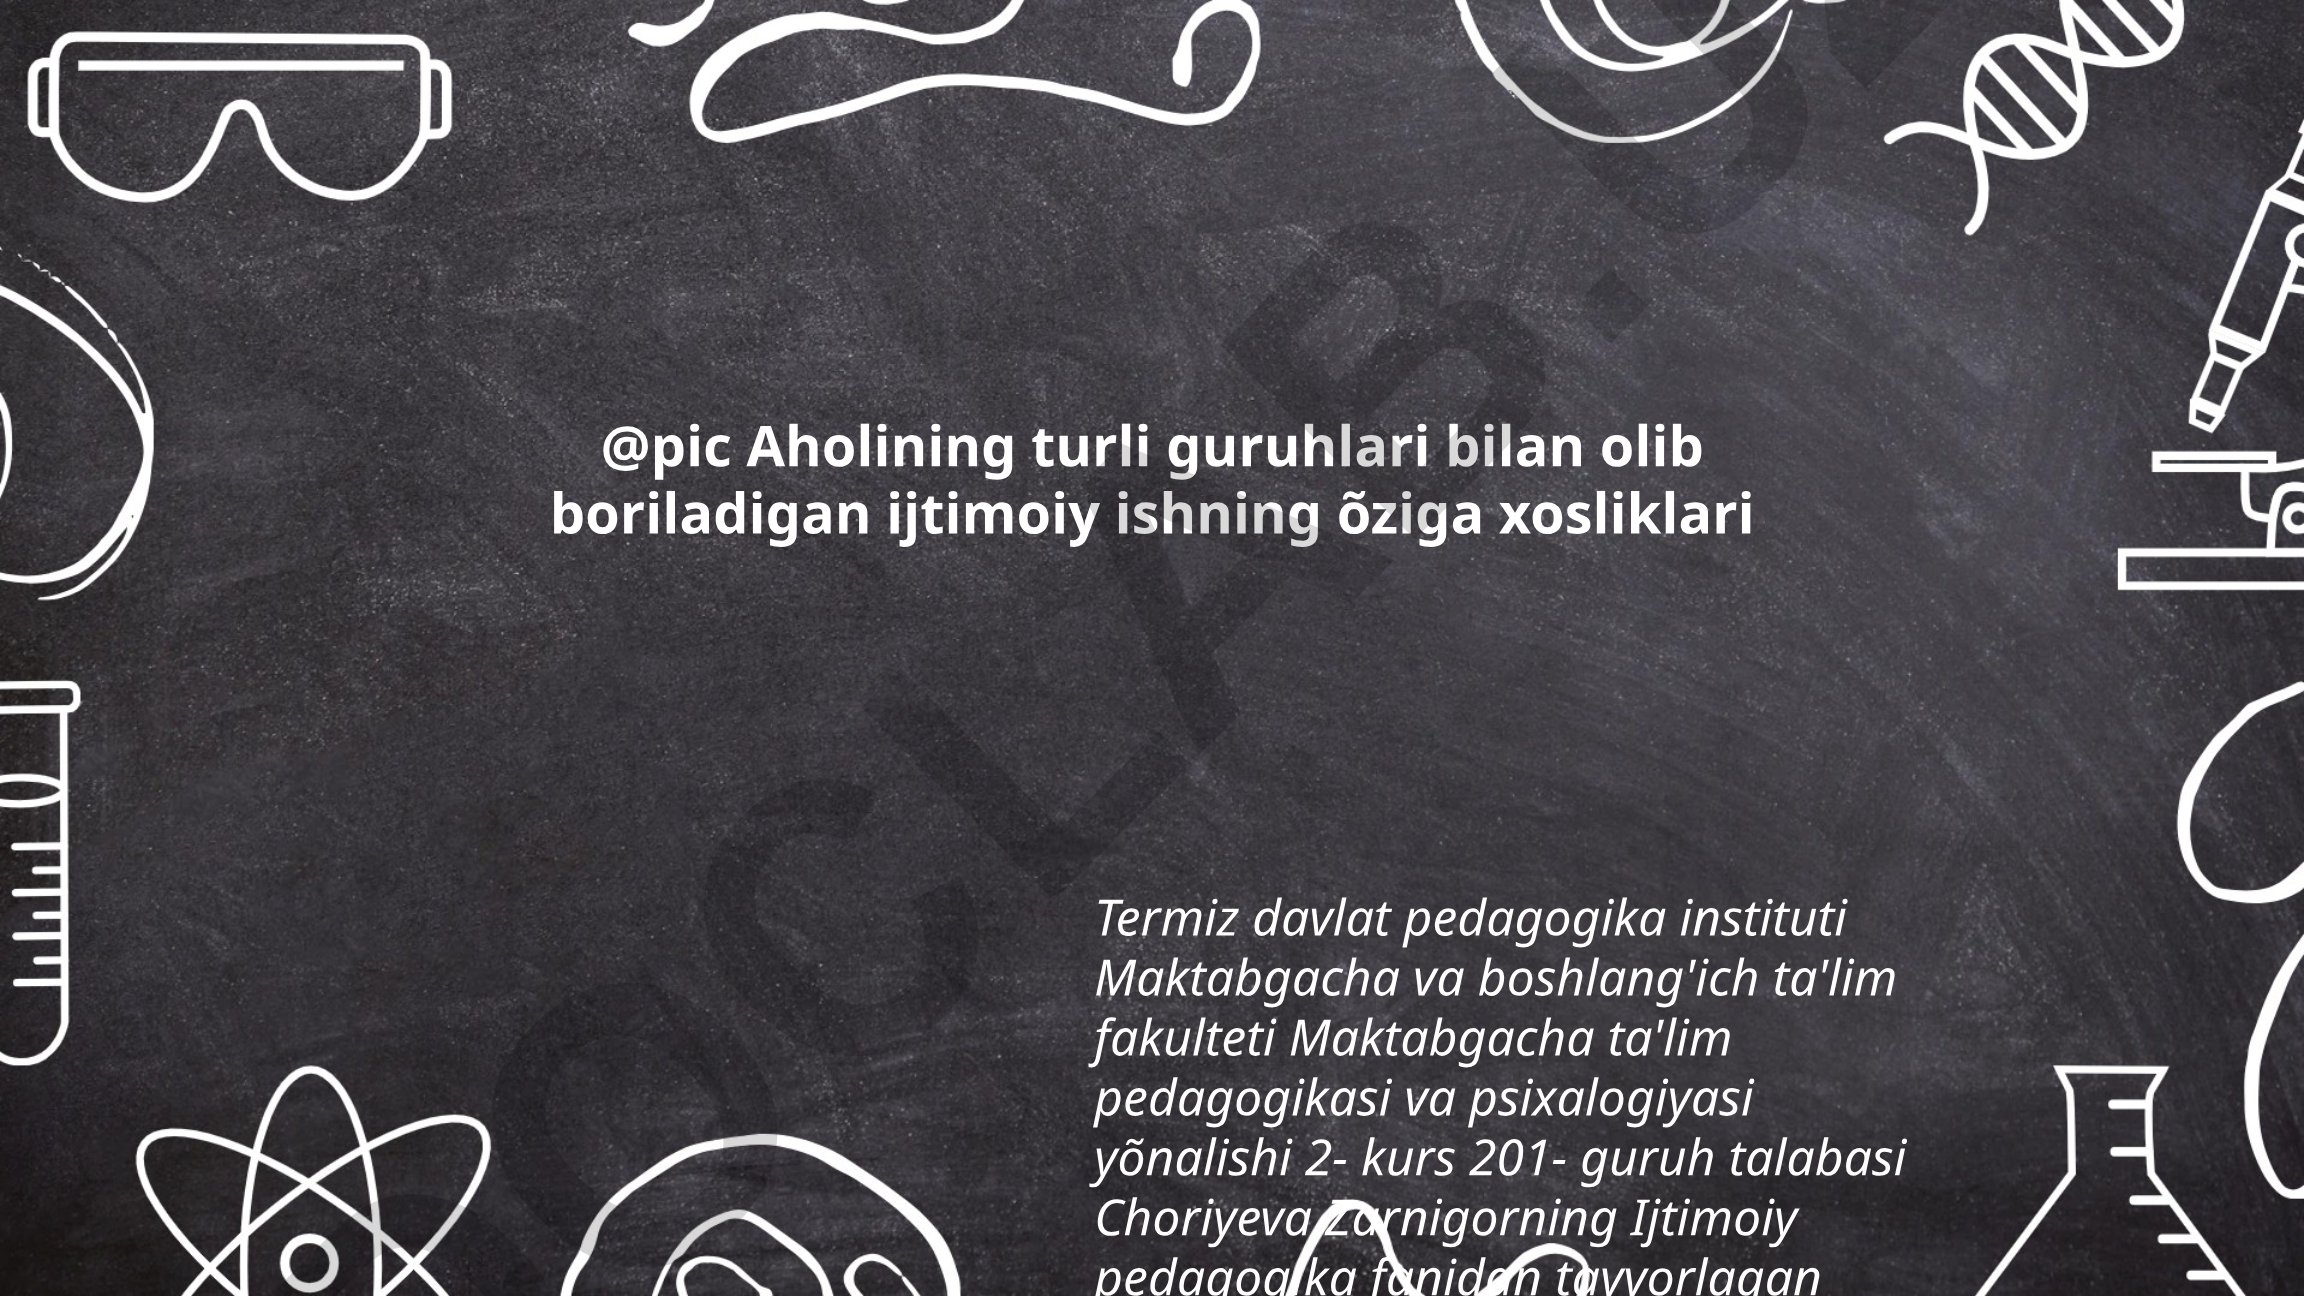 @pic Aholining turli guruhlari bilan olib
boriladigan ijtimoiy ishning õziga xosliklari
Termiz davlat pedagogika instituti
Maktabgacha va boshlang'ich ta'lim
fakulteti Maktabgacha ta'lim
pedagogikasi va psixalogiyasi
yõnalishi 2- kurs 201- guruh talabasi
Choriyeva Zarnigorning Ijtimoiy
pedagogika fanidan tayyorlagan